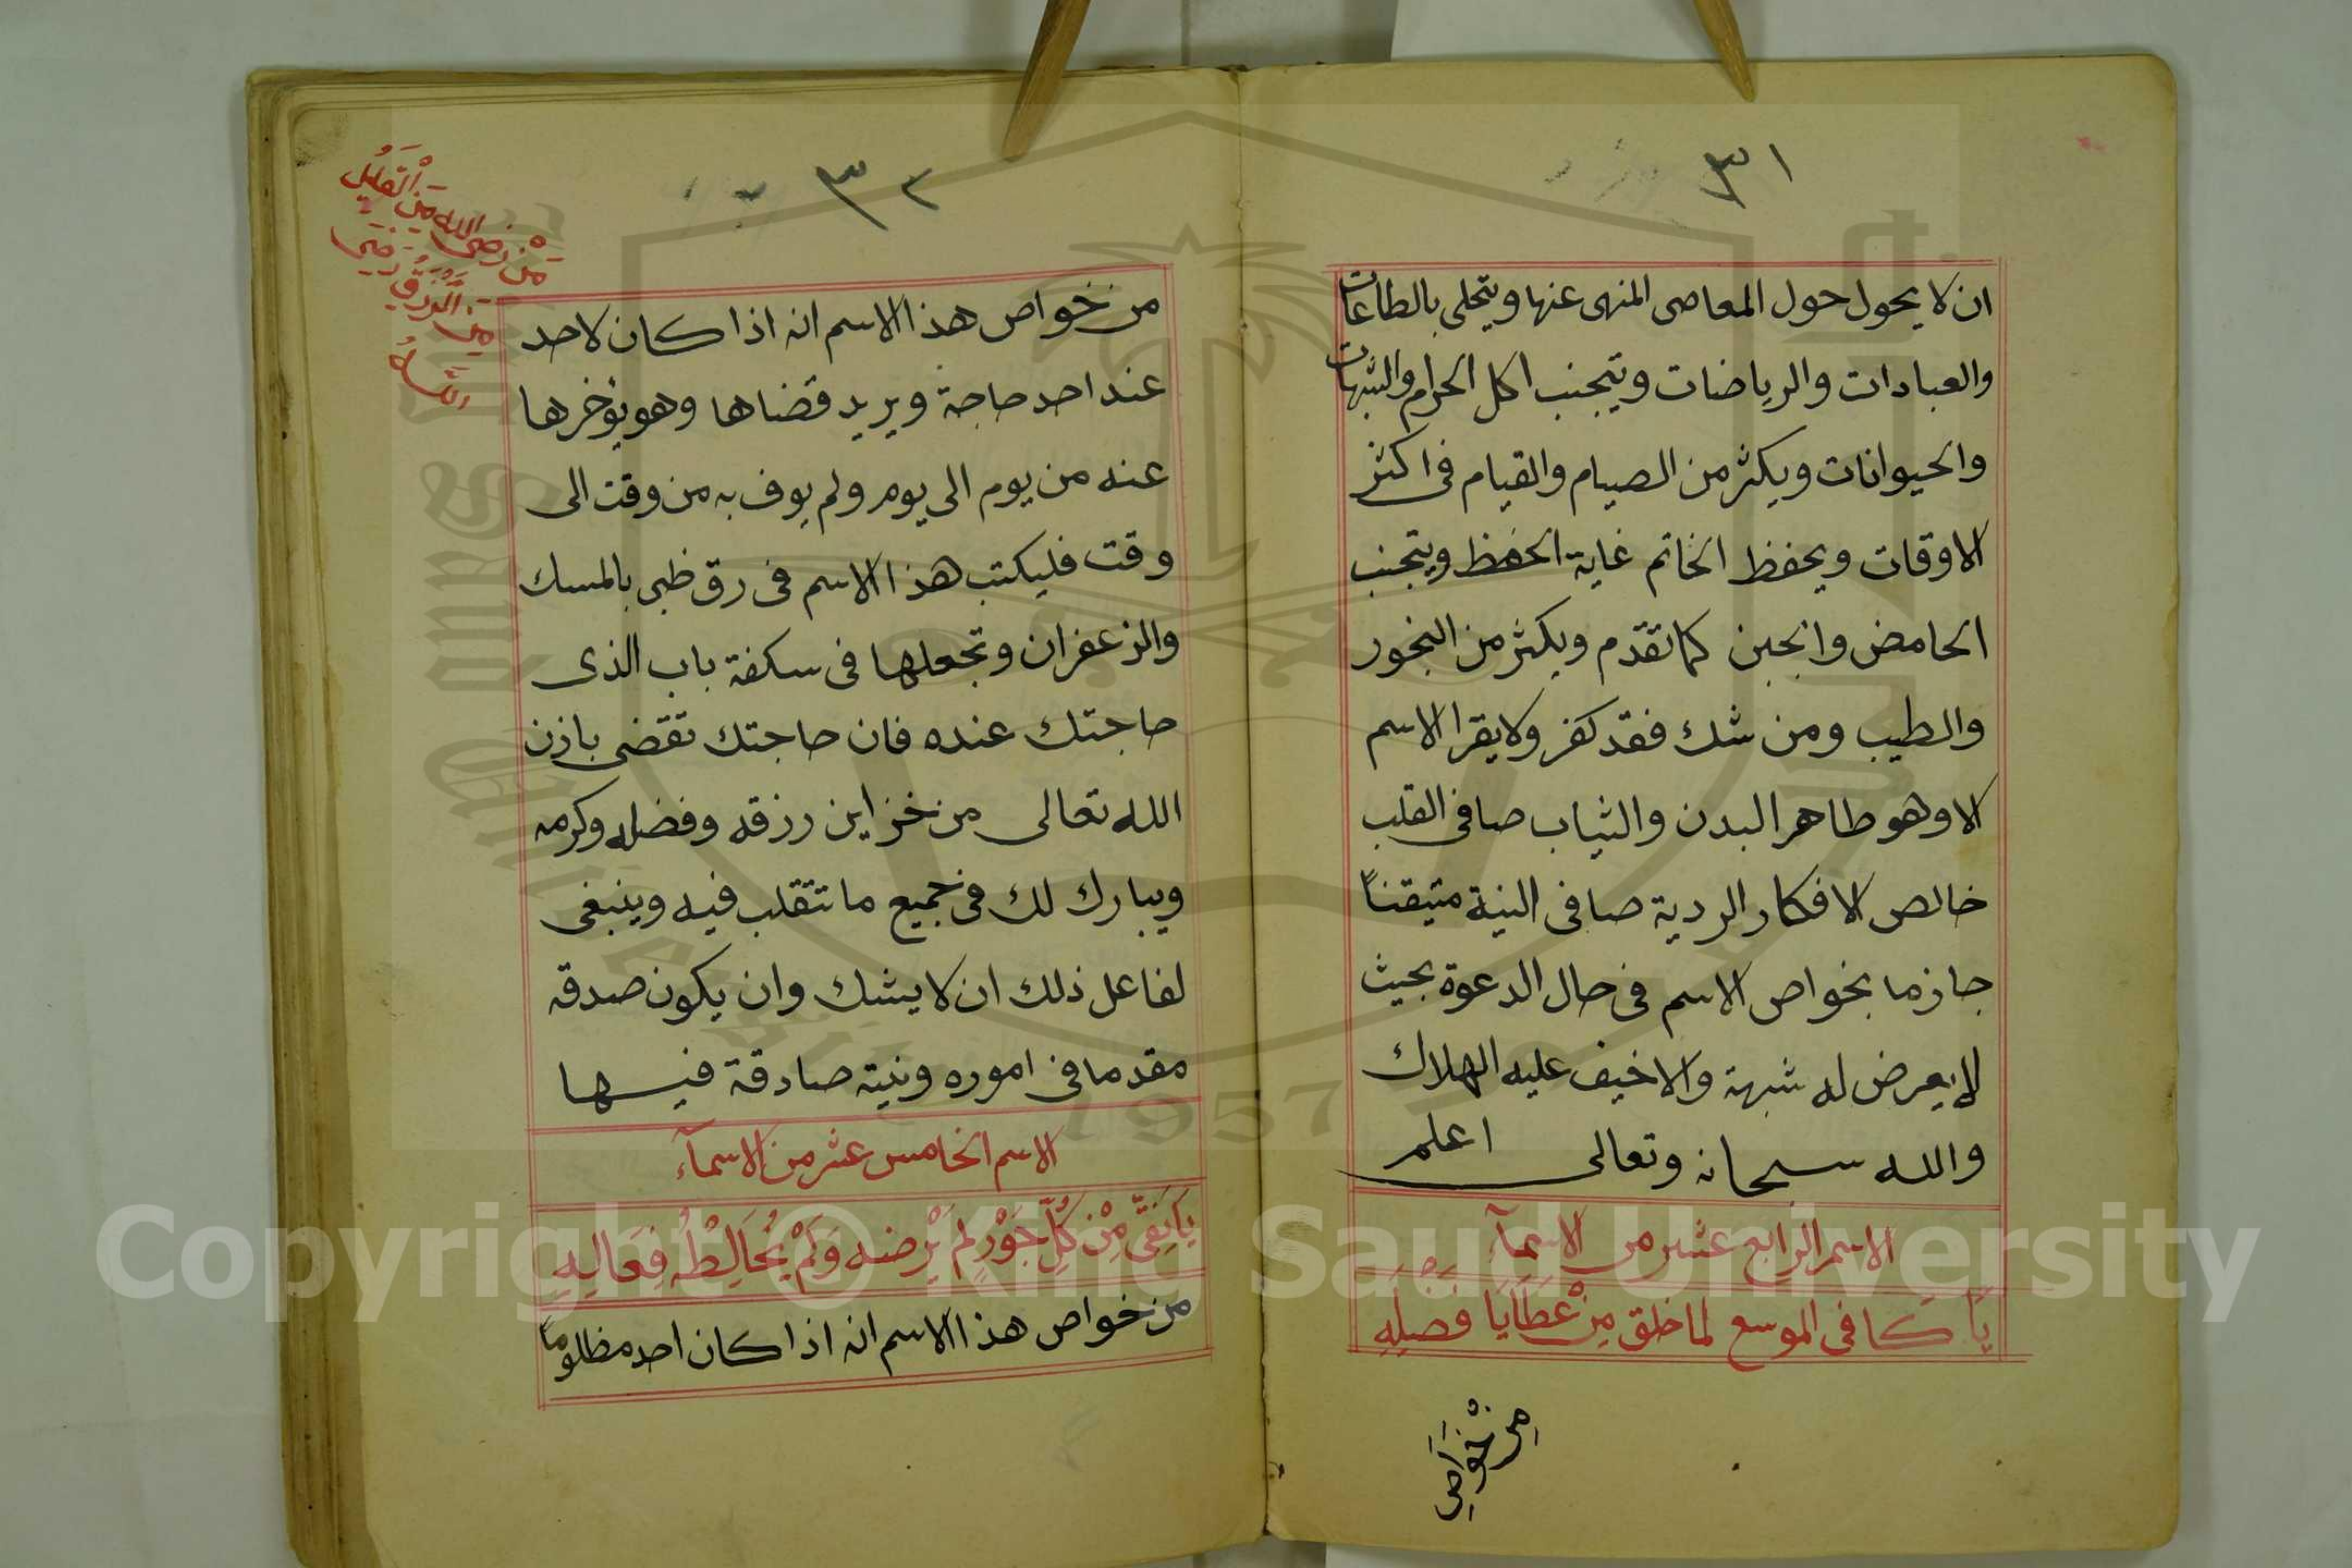 ٣١
ان لا يحول حول المعاصى المنهى عنها ويتحلى بالطاعات
والعبادات والرياضات ويتجنب اكل الحرام والشبهات
والحيوانات ويكثر من الصيام والقيام فى اكثر
الاوقات ويحفظ الخاتم غاية الحفظ ويتجنب
الحامض والجبن كما تقدّم ويكثر من البخور
والطيب ومن شك فقد كفر ولا يقرا الاسم
الا وهو طاهر البدن والثياب صافى القلب
خالص الافكار الردية صافى النية متيقناً
جازما بخواص الاسم فى حال الدعوة بحيث
لا يعرض له شبهة والا خيف عليه الهلاك
والله سبحانه وتعالى اعلم
الاسم الرابع عشر من الاسمآء
يَا كَافى الموسع لما خلق مِنْ عَطَايَا فَضْلِهِ
مِنْ خَوَاصِ
٣٢
مَنْ رَضىَ الله مِنَ الْقَلِيلِ
مِنَ الرِّزْقِ رَضِىَ
اللهُ
من خواص هذا الاسم انه اذا كان لاحد
عند احد حاجة ويريد قضاها وهو يؤخرها
عنه من يوم الى يوم ولم يوف به من وقت الى
وقت فليكتب هذا الاسم فى رق ظبى بالمسك
والزعفران وتجعلها فى سكفة باب الذى
حاجتك عنده فان حاجتك تقضى باذن
الله تعالى من خزاين رزقه وفضله وكرمه
ويبارك لك فى جميع ما تتقلب فيه وينبغى
لفاعل ذلك ان لا يشك وان يكون صدقه
مقدما فى اموره ونيته صادقة فيها
الاسم الخامس عشر من الاسمآء
يَا نَقِىَّ مِنْ كُلِّ جَوْرٍ لَمْ يَرْضَه وَلَمْ يُخَالِطْهُ فِعَالِهِ
من خواص هذا الاسم انه اذا كان احد مظلوماً
Copyright © King Saud University
1957